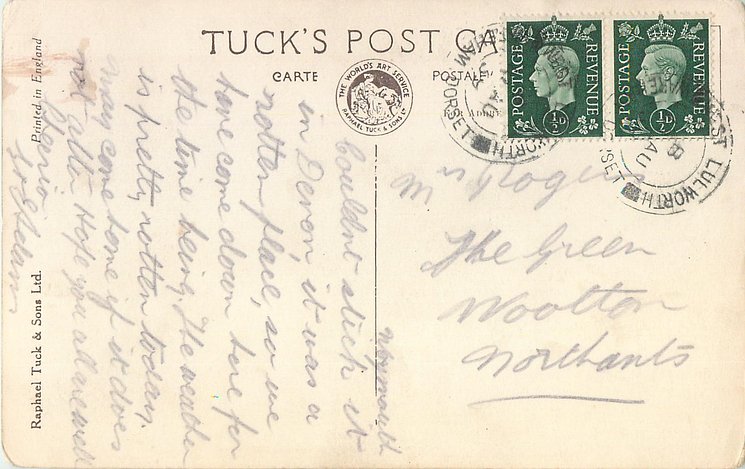 TUCK'S POST CA
CARTE
POSTALE
THE WORLD'S ART SERVICE
RAPHAEL TUCK & SONS LTD
POSTAGE REVENUE
½D
POSTAGE REVENUE
½D
WEST LULWORTH
DORSET
8 AU
Printed in England
Raphael Tuck & Sons Ltd.
Weymouth
Couldnt stick it
in Devon, it was a
rotten place, so we
have come down here for
the time being. The weather
is pretty rotten today,
may come home if it does
not alter Hope you all are well
Cheerio
Mrs Rogers
The Green
Wootton
Northants